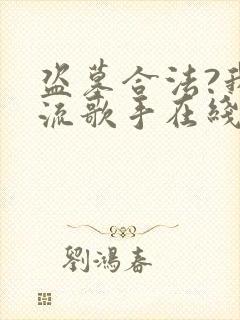 盗墓合法?我
流歌手在綫
劉鴻春